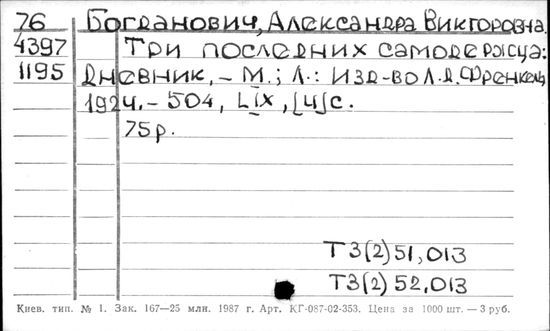 76 Богданович, Александра Викторовна.
4397 Три последних самодержца:
1195 Дневник, - М.; Л.: Изд-во Л.Д. Френкель,
1924. - 504, LIX, [4] с.
75 р.
Т3(2)51,013
Т3(2)52.013
Киев. тип. № 1. Зак. 167—25 млн. 1987 г. Арт. КГ-087-02-353. Цена за 1000 шт. — 3 руб.